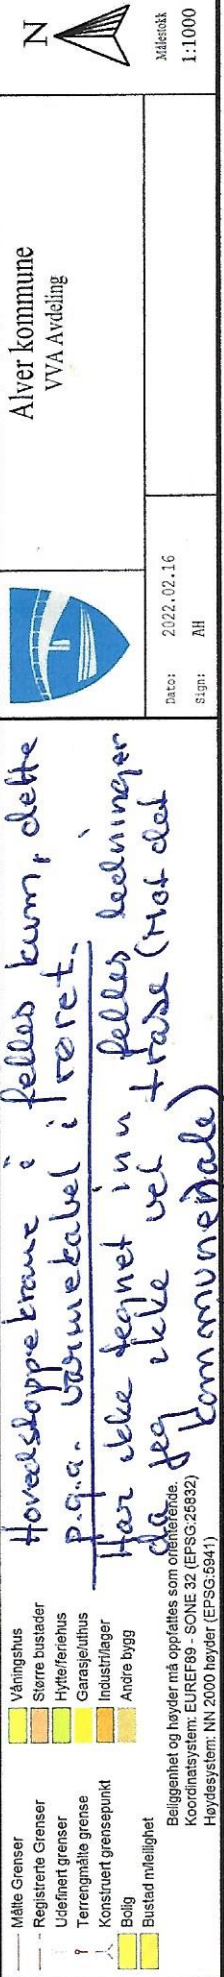 Målte Grenser
Registrerte Grenser
Udefinert grenser
Terrengmålte grense
Konstruert grensepunkt
Bolig
Bustad m/leilighet
Våningshus
Større bustader
Hytte/feriehus
Garasje/uthus
Industri/lager
Andre bygg
Beliggenhet og høyder må oppfattes som orienterende.
Koordinatsystem: EUREF89 - SONE 32 (EPSG:25832)
Høydesystem: NN 2000 høyder (EPSG:5941)
Hovedstoppekrane i felles kum, dette
p.g.a. varmekabel i røret.
Har ikke tegnet inn felles ledninger
da jeg ikke vet trase (mot det
kommunepale)
Alver kommune
VVA Avdeling
Dato: 2022.02.16
Sign: AH
N
Målestokk
1:1000